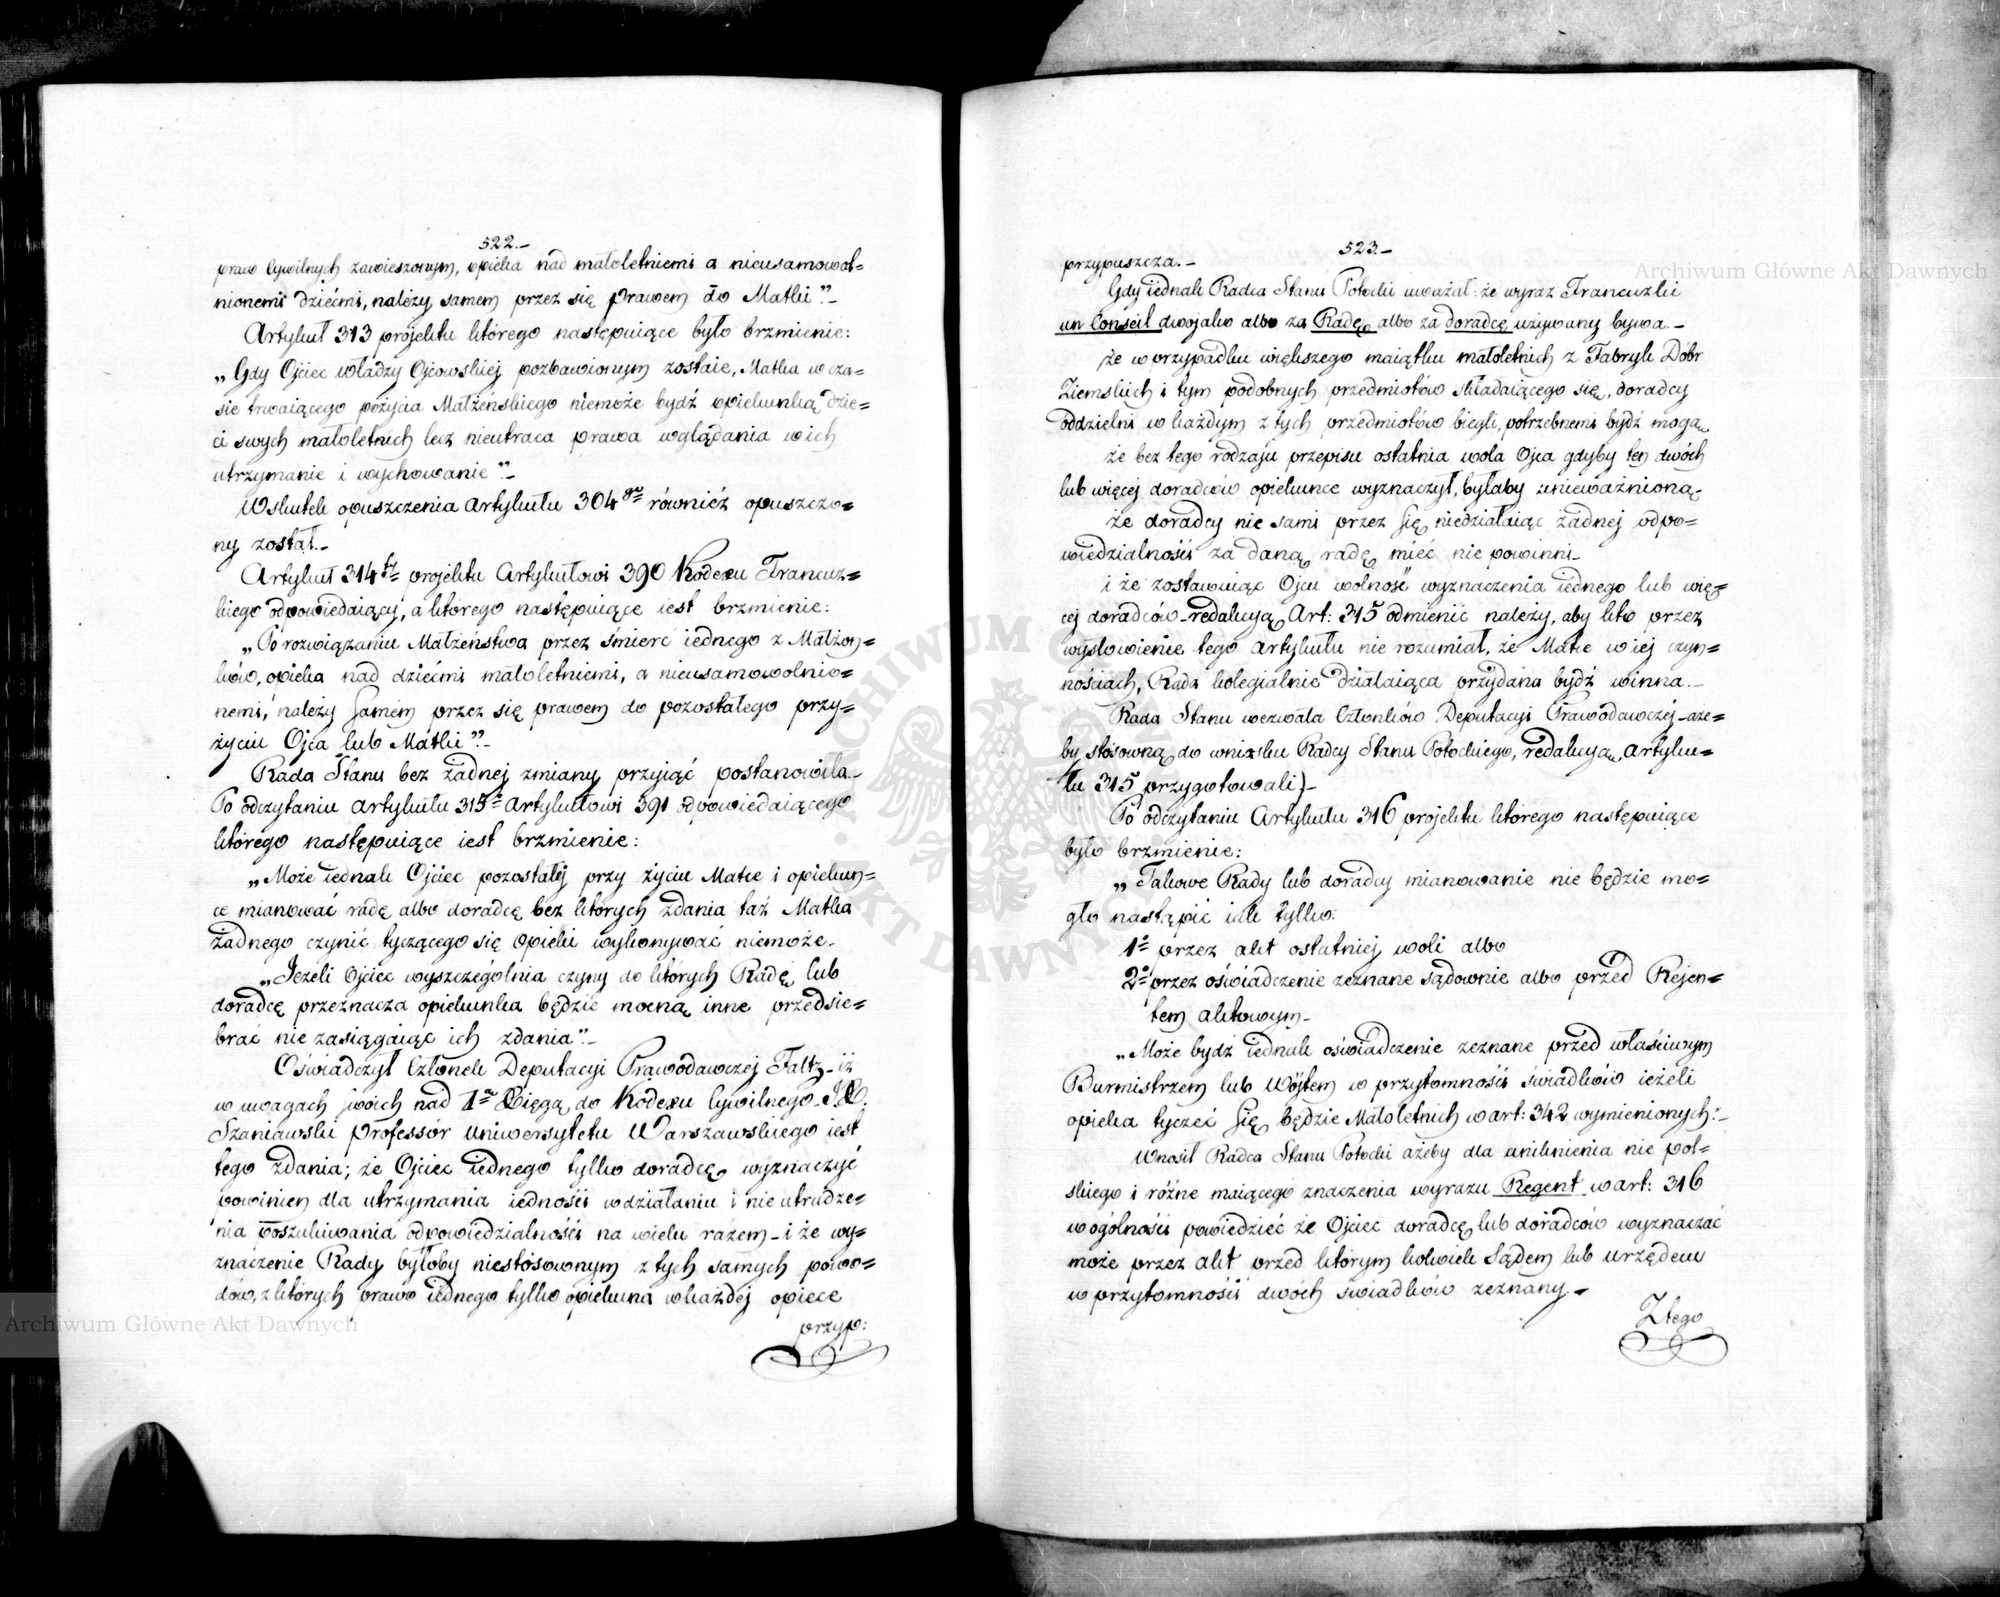 522.-
praw Cywilnych zawieszonym, opieka nad małoletniemi a nieusamowol=
nionemi dziećmi, należy samem przez się prawem do Matki"-
Artykuł 313 projektu którego następuiące było brzmienie:
„Gdy Ojciec władzy Ojcowskiej pozbawionym zostaie, Matka w cza=
sie trwaiącego pożycia Małżeńskiego niemoże bydź opiekunką dzie=
ci swych małoletnich lecz nieutraca prawa wglądania w ich
utrzymanie i wychowanie"-
Wskutek opuszczenia Artykułu 304go również opuszczo=
ny został.-
Artykuł 314ty projektu Artykułowi 390 Kodexu Francuz=
kiego odpowiedaiący, a którego następuiące iest brzmienie:
„Po rozwiązaniu Małżeństwa przez śmierć iednego z Małżon=
ków, opieka nad dziećmi małoletniemi, a nieusamowolnio=
nemi, należy samem przez się prawem do pozostałego przy=
życiu Ojca lub Matki"-
Rada Stanu bez żadnej zmiany przyiąć postanowiła-
Po odczytaniu Artykułu 315o Artykułowi 391 odpowiedaiącego
którego następuiące iest brzmienie:
„Może iednak Ojciec pozostałej przy życiu Matce i opiekun=
ce mianować radę albo doradcę bez których zdania taż Matka
żadnego czynić tyczącego się Opieki wykonywać niemoże.
„Jeżeli Ojciec wyszczególnia czyny do których Radę lub
doradcę przeznacza opiekunka będzie mocną inne przedsię=
brać nie zasiągaiąc ich zdania"-
Oświadczył Członek Deputacyi Prawodawczej Faltz- iż
w uwagach swoich nad 1ą Xięgą do Kodexu Cywilnego
Szaniawski Professór Uniwersytetu Warszawskiego iest
tego zdania; że Ojciec iednego tylko doradcę wyznaczyć
powinien dla utrzymania iedności wdziałaniu i nie utrudze=
nia poszukiwania odpowiedzialności na wielu razem- i że wy=
znaczenie Rady byłoby niestósownym z tych samych powo=
dów, z których prawo iednego tylko opiekuna wkażdej opiece
przyp:
523.-
przypuszcza.-
Gdy iednak Radca Stanu Potocki uważał: że wyraz Francuzki
un Conseil dwojako albo za Radę albo za doradcę używany bywa-
że w przypadku większego maiątku małoletnich z Fabryk Dóbr
Ziemskich i tym podobnych przedmiotów składaiącego się, doradcy
oddzielni w każdym z tych przedmiotów biegli, potrzebnemi bydź mogą
że bez tego rodzaju przepisu ostatnia wola Ojca gdyby ten dwóch
lub więcej doradców opiekunce wyznaczył, byłaby unieważnioną-
że doradcy nie sami przez się niedziałaiąc żadnej odpo=
wiedzialności za daną radę mieć nie powinni-
i że zostawuiąc Ojcu wolność wyznaczenia iednego lub wię=
cej doradców- redakcyą Art: 315 odmienić należy, aby kto przez
wysłowienie tego Artykułu nie rozumiał, że Matce w iej czyn=
nościach, Rada kolegialnie działaiąca przydana bydź winna.-
Rada Stanu wezwała Członków Deputacyi Prawodawczej- aże=
by stósowną do wniosku Radcy Stanu Potockiego, redakcyą Artyku=
łu 315 przygotowali)-
Po odczytaniu Artykułu 316 projektu którego następuiące
było brzmienie:
„Takowe Rady lub doradcy mianowanie nie będzie mo=
gło nastąpić iak tylko:
1o przez akt ostatniej woli albo
2o przez oświadczenie zeznane sądownie albo przed Rejen=
tem aktowym-
„Może bydź iednak oświadczenie zeznane przed właściwym
Burmistrzem lub Wójtem w przytomności świadków ieżeli
opieka tyczeć się będzie Małoletnich w art: 342 wymienionych"-
Wnosił Radca Stanu Potocki ażeby dla uniknienia nie pol=
skiego i różne maiącego znaczenia wyrazu Regent w art: 316
w ogólności powiedzieć że Ojciec doradcę lub doradców wyznaczać
może przez akt przed którym kolwiek Sądem lub urzędem
w przytomności dwóch świadków zeznany-
Ztego
Archiwum Główne Akt Dawnych
Archiwum Główne Akt Dawnych